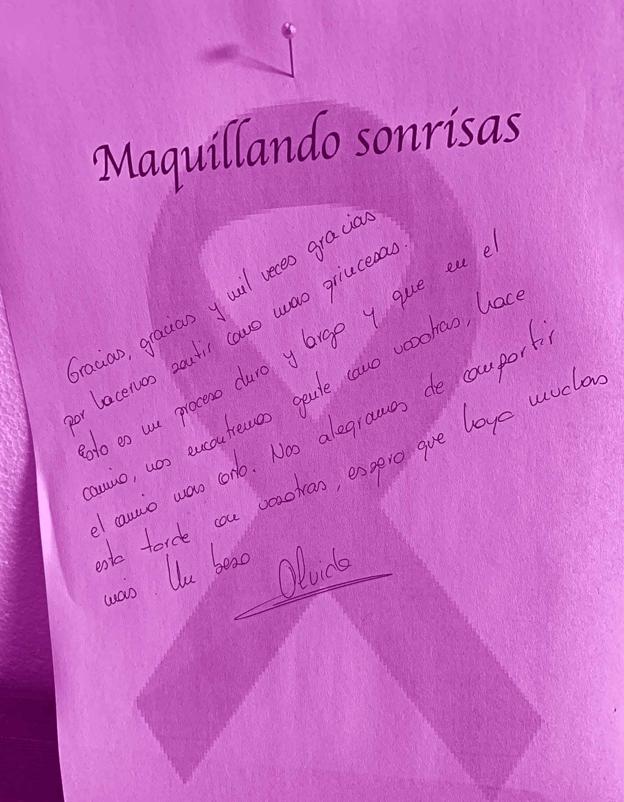 Maquillando sonrisas
Gracias, gracias y mil veces gracias
por hacernos sentir como unas princesas.
Esto es un proceso duro y largo y que en el
camino, nos encontremos gente como vosotras, hace
el camino mas corto. Nos alegramos de compartir
esta tarde con vosotras, espero que haya muchas
más. Un beso Olvido